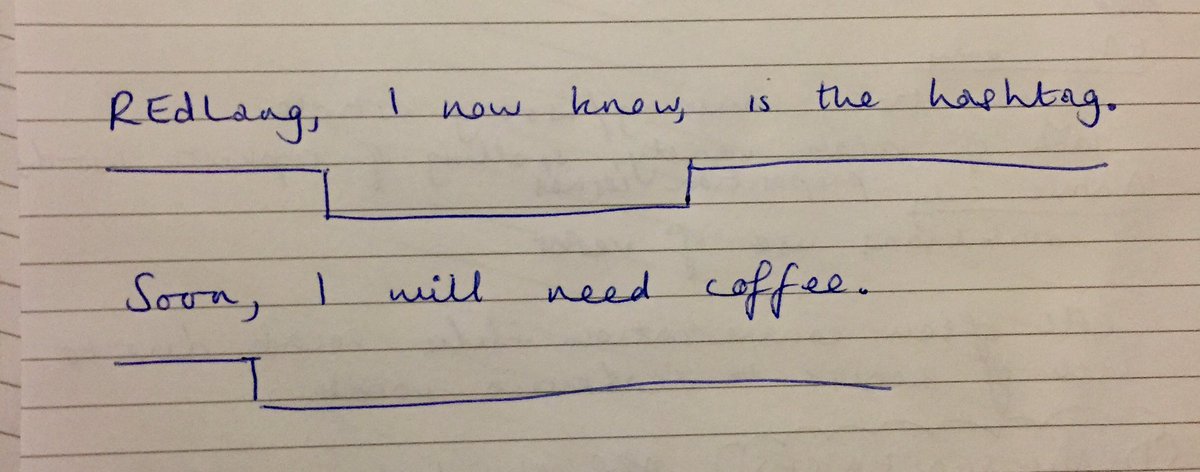 REdLang, I now know, is the hashtag.
Soon, I will need coffee.